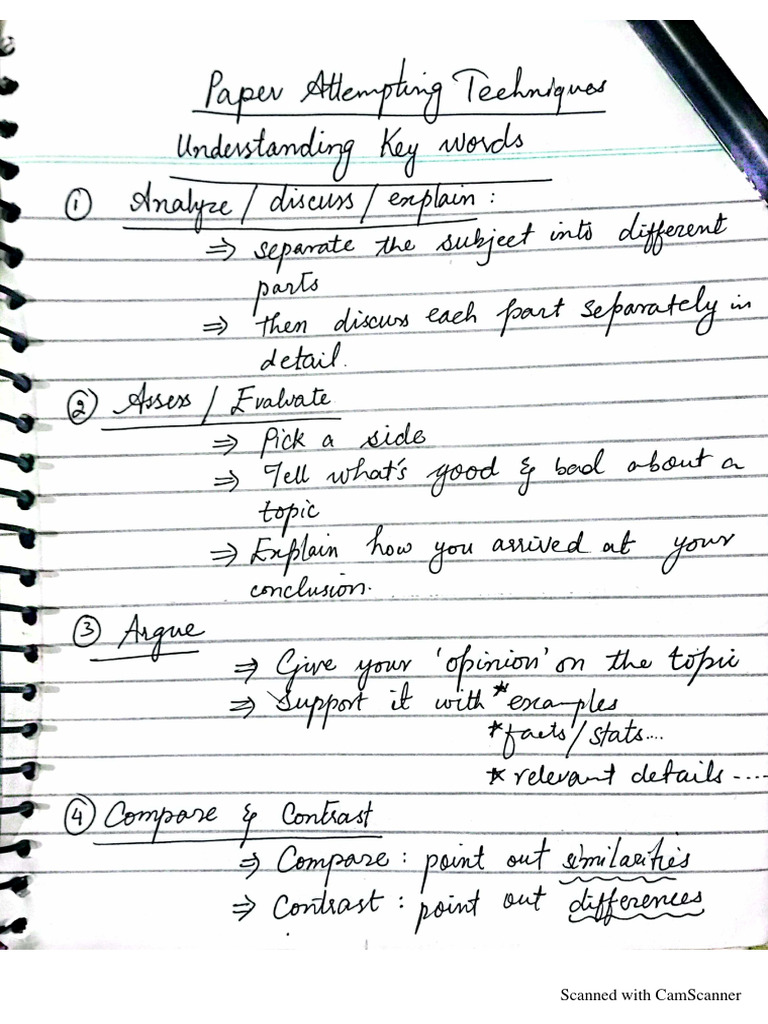 Paper Attempting Techniques
Understanding Key words
① Analyze / discuss / explain :
⇒ separate the subject into different
parts
⇒ then discuss each part separately in
detail.
② Assess / Evaluate
⇒ Pick a side
⇒ Tell what's good & bad about a
topic
⇒ Explain how you arrived at your
conclusion.
③ Argue
⇒ Give your 'opinion' on the topic
⇒ Support it with * examples
* facts / stats....
* relevant details ----
④ Compare & Contrast
⇒ Compare : point out similarities
⇒ Contrast : point out differences
Scanned with CamScanner